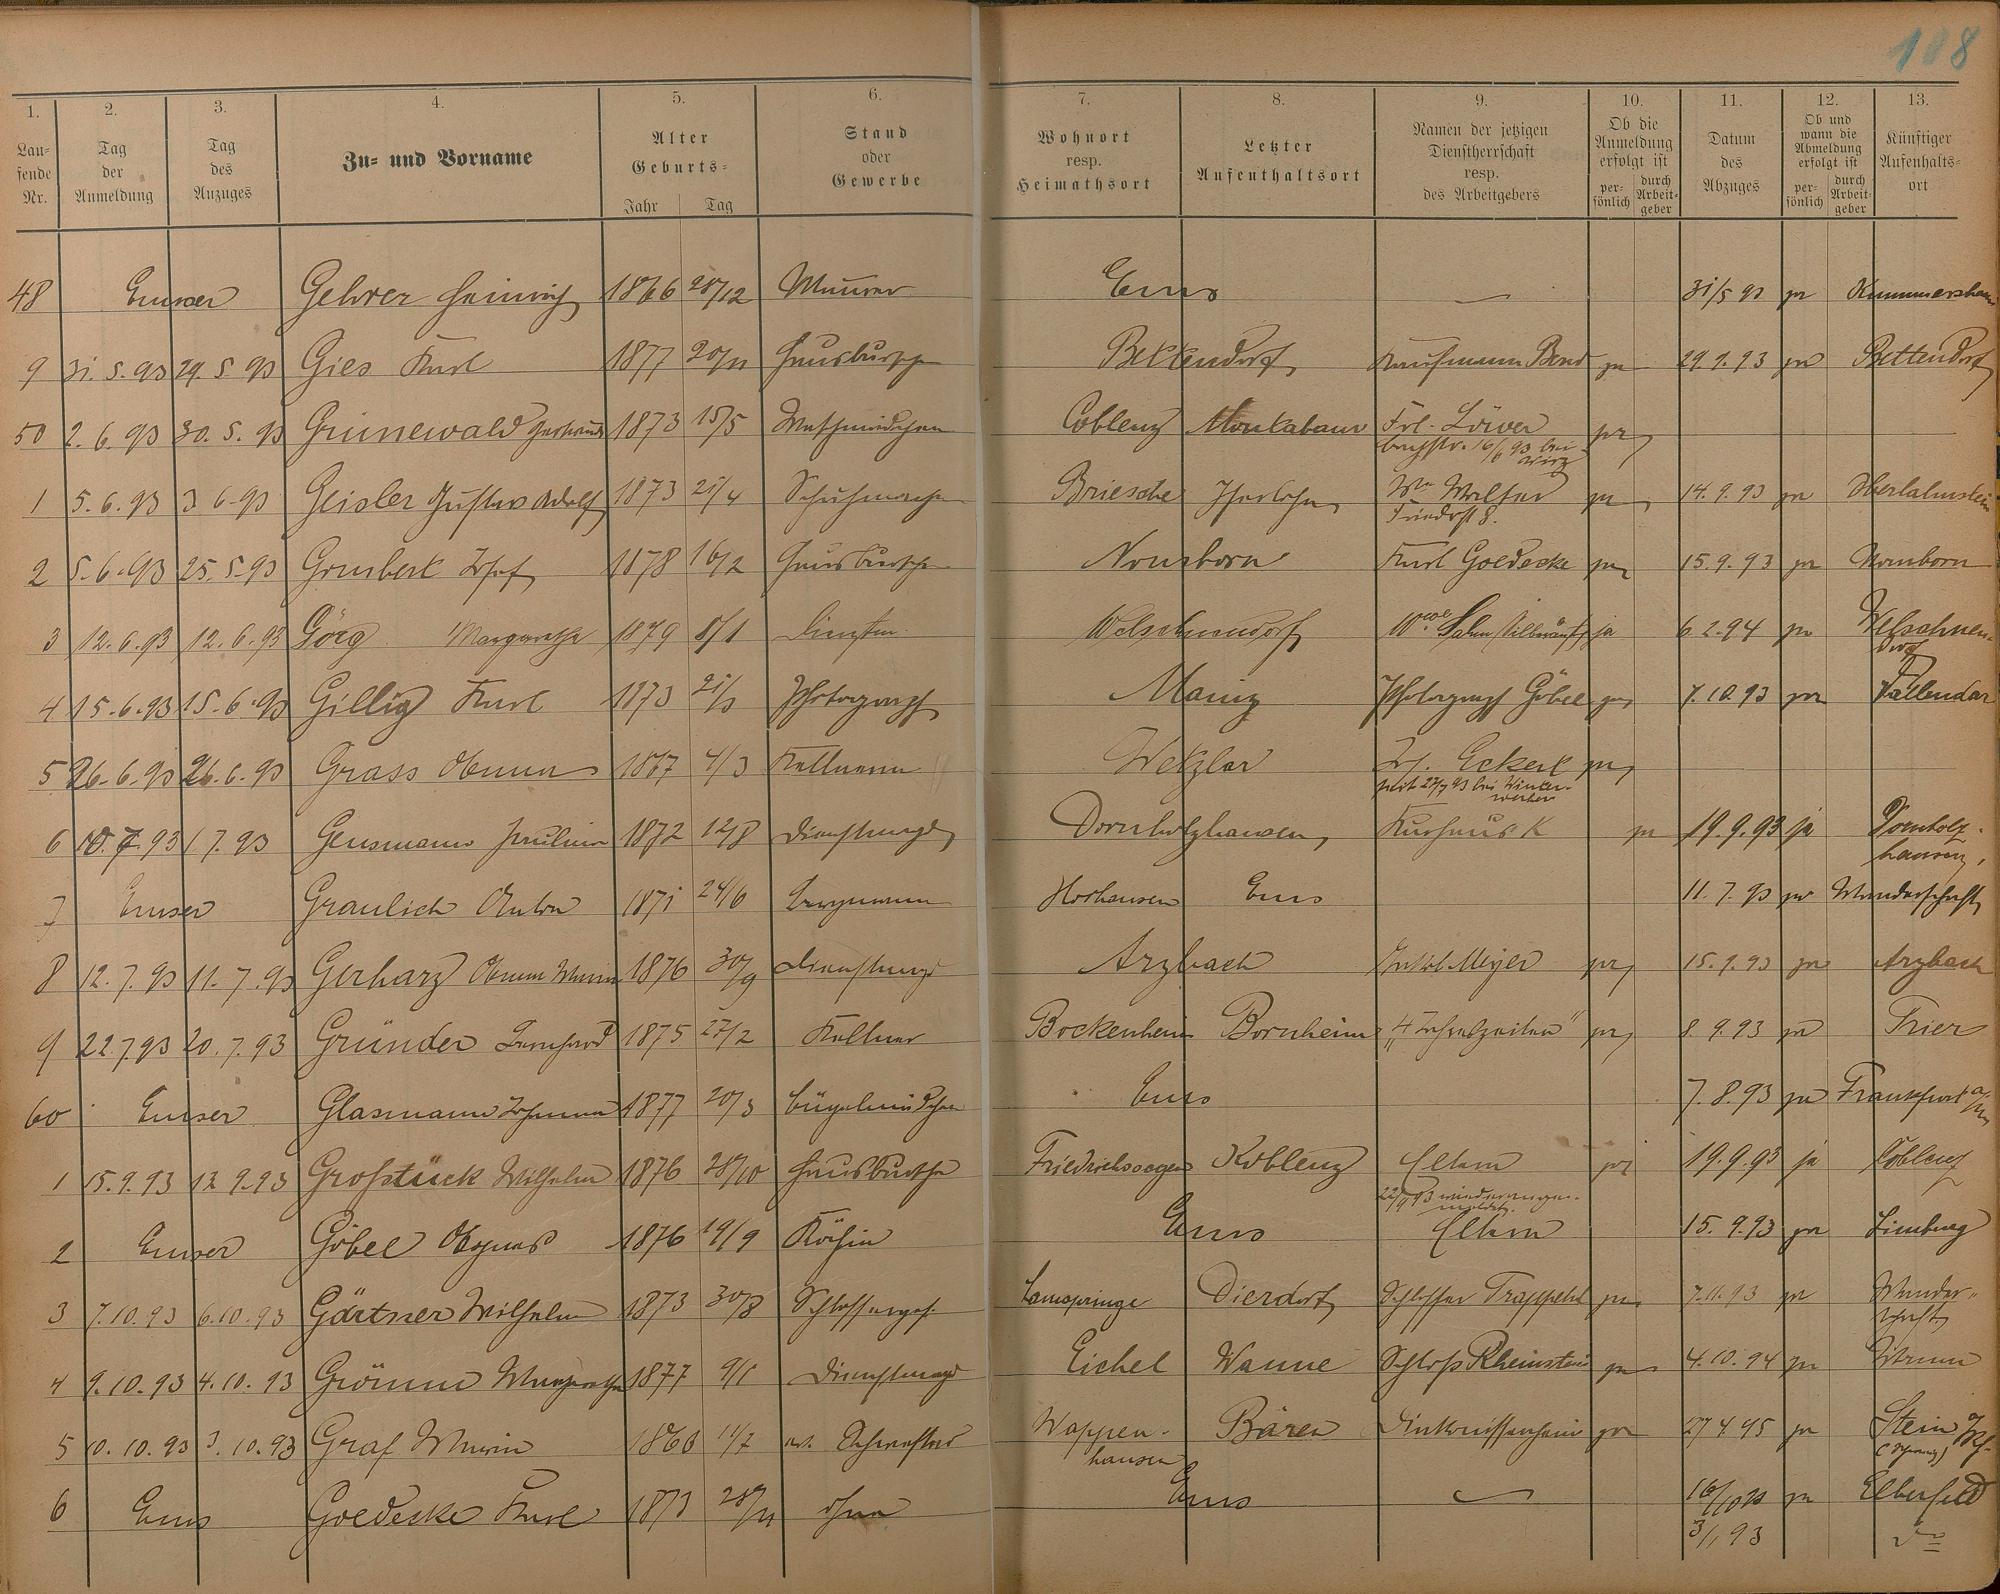 108
1. 2. 3. 4. 5. 6. 7. 8. 9. 10. 11. 12. 13.
Laufende Nr. Tag der Anmeldung Tag des Anzuges Zu- und Vorname Alter Geburts- Jahr Tag Stand oder Gewerbe Wohnort resp. Heimathsort Letzter Aufenthaltsort Namen der jetzigen Dienstherrschaft resp. des Arbeitgebers Ob die Anmeldung erfolgt ist persönlich durch Arbeitgeber Datum des Abzuges Ob und wann die Abmeldung erfolgt ist persönlich durch Arbeitgeber Künftiger Aufenthaltsort
48 Emser Gehrer Heinrich 1866 28/12 Maurer Ems 31/5 93 ja
9 31.5.93 29.5.93 Gies Karl 1877 20/11 Hausbursche Bettendorf Kaufmann ja 29.9.93 ja Bettendorf
50 2.6.93 30.5.93 Grünewald 1873 15/5 Coblenz Montabaur Frl. Löwer ja
16/6 93 bei
1 5.6.93 3.6.93 Geisler Gustav Adolf 1873 21/4 Schuhmacher Briesche Iserlohn Wm Walter ja 14.9.93 ja Oberlahnstein
Friedrst 8.
2 5.6.93 25.5.93 Josef 1878 16/2 Hausbursche Nomborn Karl Goedecke ja 15.9.93 ja Nomborn
3 12.6.93 12.6.93 Görg Margaretha 1879 8/1 Welschneudorf Wwe ja 6.2.94 ja Welschneu-
dorf
4 15.6.93 15.6.93 Gillig Karl 1873 21/3 Photograph Mainz Photograph Göbel ja 7.10.93 ja Vallendar
5 26.6.93 26.6.93 Grass Anna 1867 4/3 Wetzlar Eckert ja
seit 27/7 93 bei Winter-
6 10.7.93 1 7.93 Gensmann Pauline 1872 12/8 Dienstmagd Dornholzhausen Kurhaus ja 19.9.93 ja Dornholz-
hausen
7 Emser Graulich Anton 1871 24/6 Bergmann Horhausen Ems 11.7.93 ja Wanderschaft
8 12.7.93 11.7.93 Gerharz Anna Maria 1876 30/9 Dienstmagd Arzbach Jakob Meyer ja 15.9.93 ja Arzbach
9 22.7.93 20.7.93 Gründer Bernhard 1875 27/2 Kellner Bockenheim Bornheim „4 Jahreszeiten" ja 8.9.93 ja Trier
60 Emser Glasmann Johanna 1877 20/3 Bügelmädchen Ems 7.8.93 ja Frankfurt a/M
1 15.9.93 12.9.93 Großtück Wilhelm 1876 28/10 Hausbursche Friedrichssegen Koblenz Eltern ja 19.9.93 ja Coblenz
22/9 93 wiederange-
meldet.
2 Emser Göbel Agnes 1876 19/9 Köchin Ems Eltern 15.9.93 ja Limburg
3 7.10.93 6.10.93 Gärtner Wilhelm 1873 30/8 Schlosserges. Lamspringe Dierdorf Schlosser ja 7.11.93 ja Wander-
schaft
4 9.10.93 4.10.93 Margaretha 1877 9/1 Dienstmagd Eichel Wanne Schloß Rheinstein ja 4.10.94 ja
5 10.10.93 3.10.93 Graf Maria 1860 11/7 ev. Schwester Wappen-
hausen Bären Diakonissenheim ja 27 4 95 ja Stein
6 Ems Goedecke Karl 1873 28/11 ohne Ems 16/10 93 ja Elberfeld
3/1 93